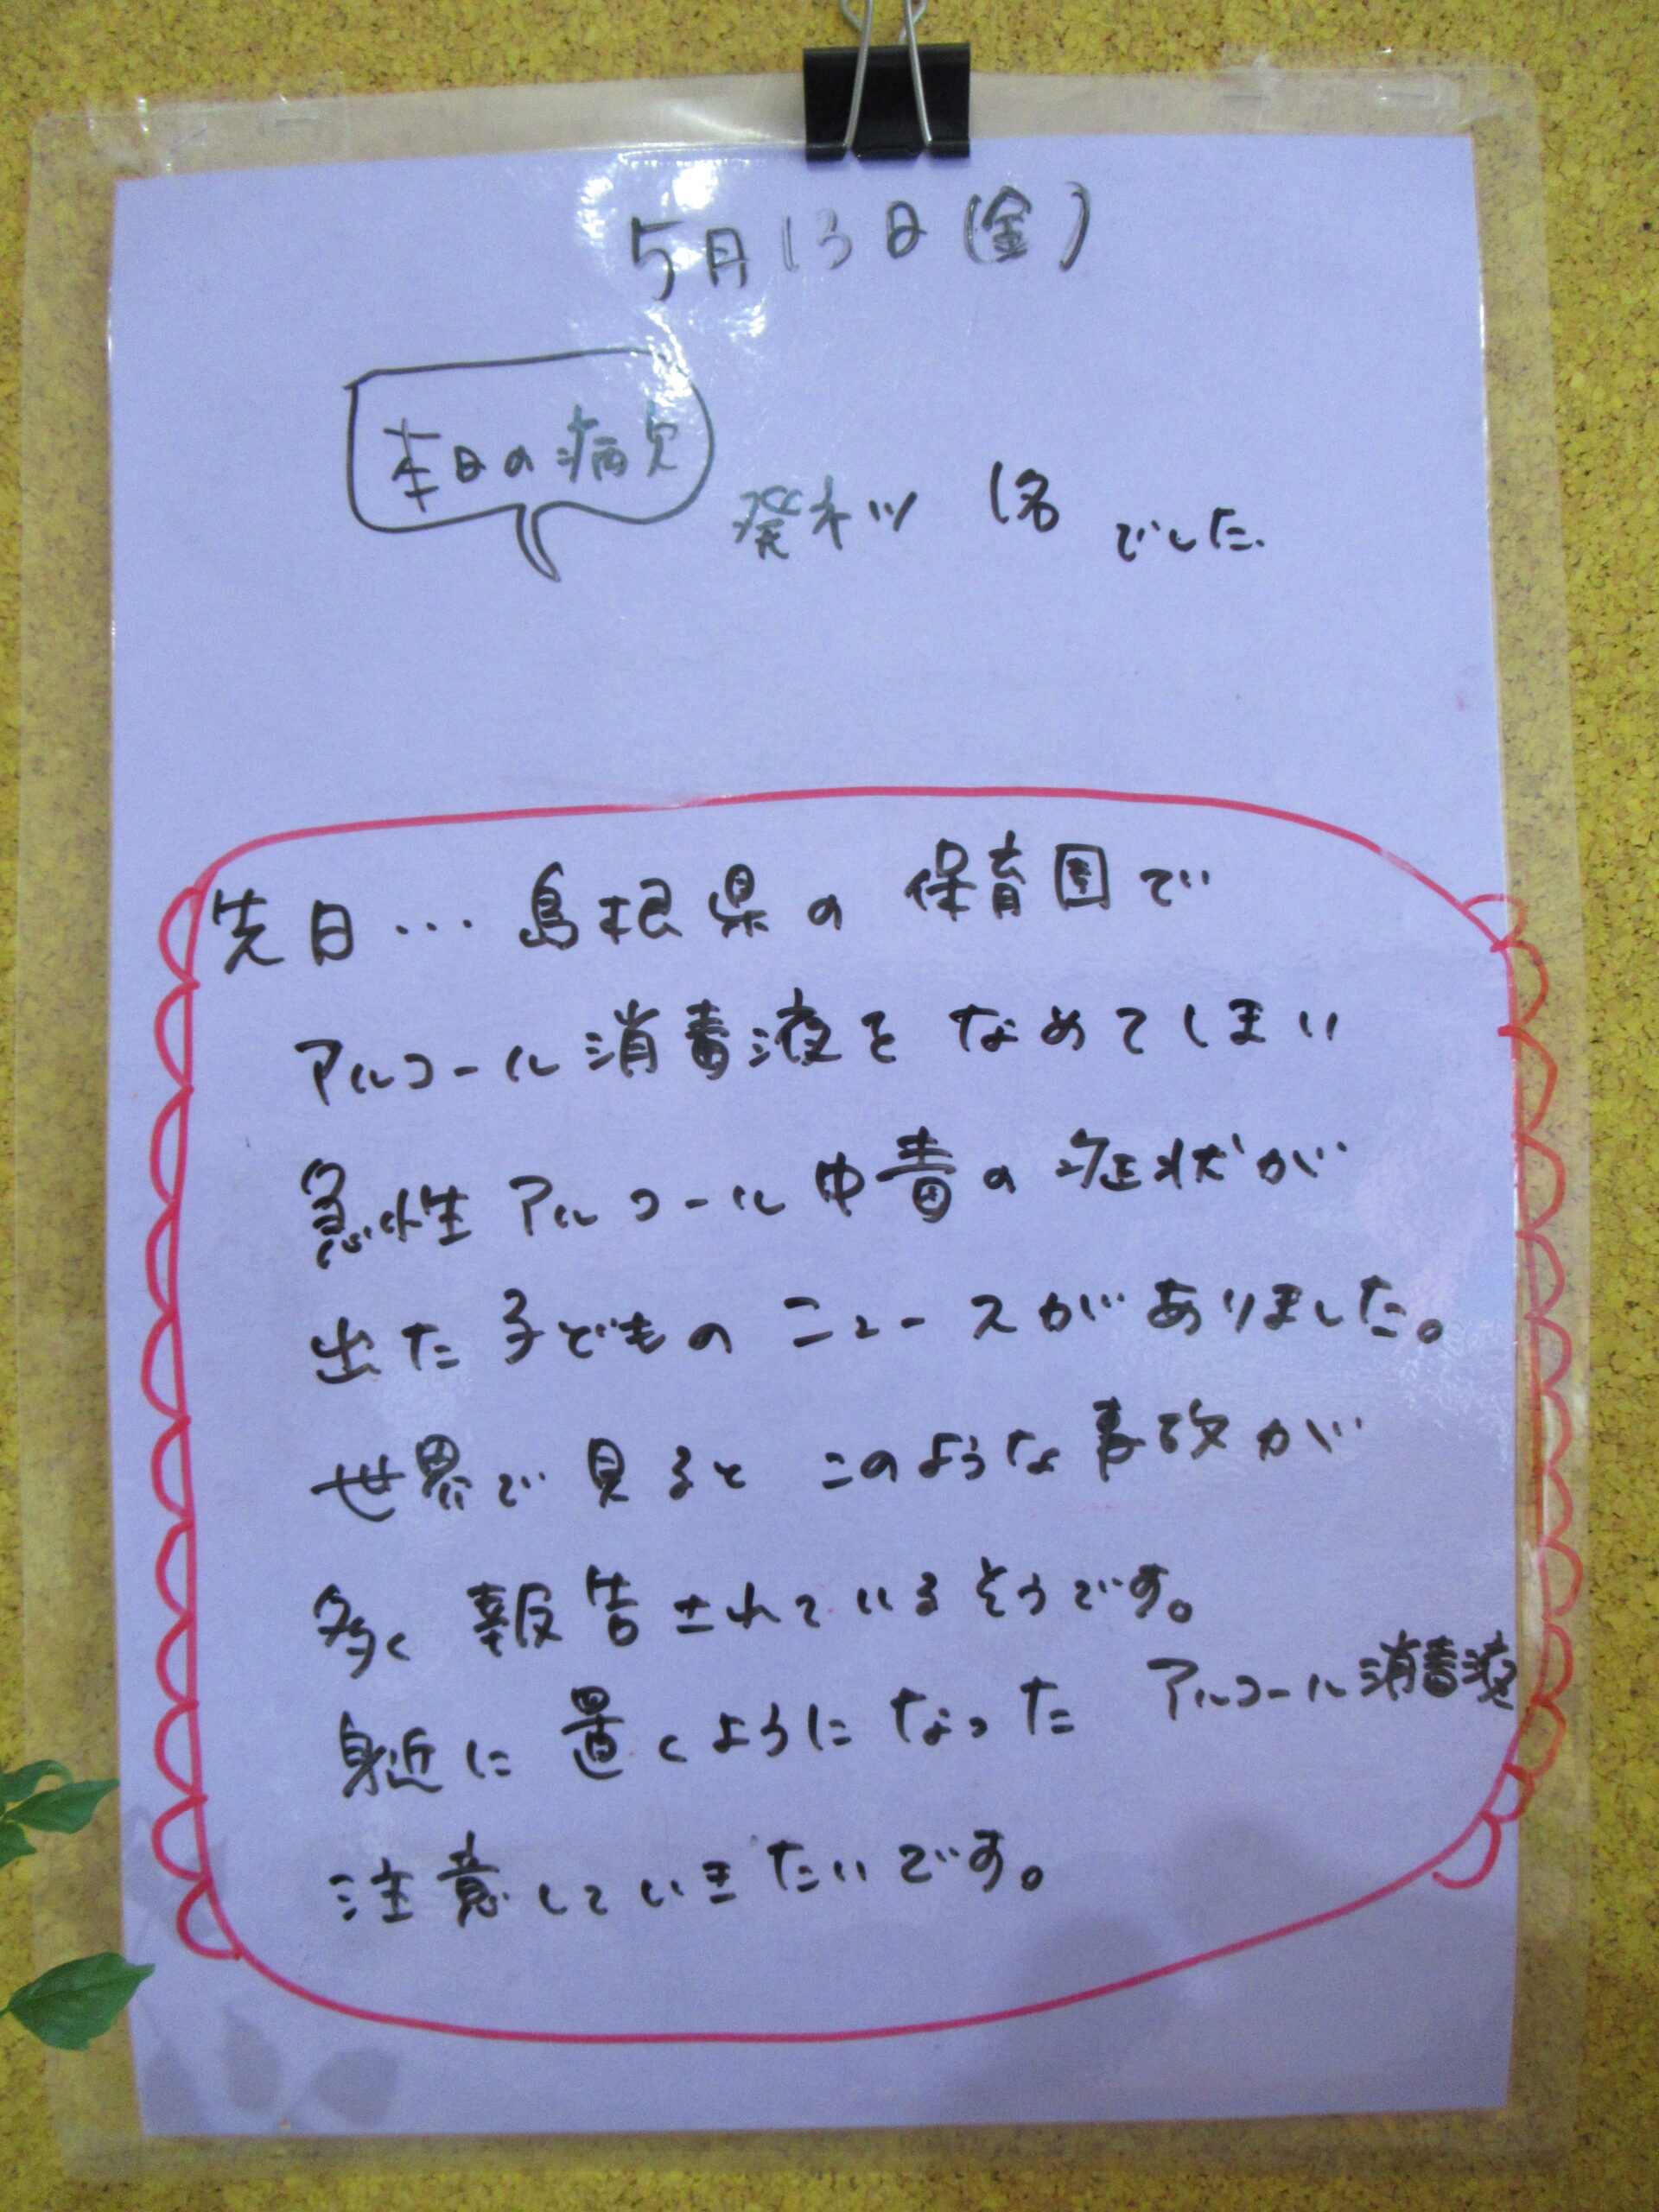 5月13日(金)
本日の病欠
発ネツ 1名 でした.
先日… 島根県の 保育園で
アルコール消毒液を なめてしまい
急性 アルコール中毒の 症状が
出た 子どもの ニュースが ありました。
世界で 見ると このような 事故が
多く 報告されているそうです。
身近に 置くようになった アルコール消毒液
注意していきたいです。